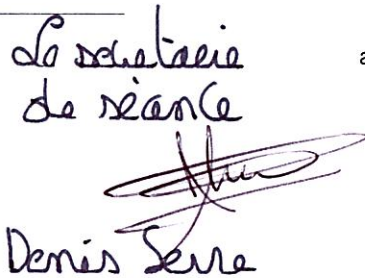 Le secrétaire
de séance
Denis Serre
a